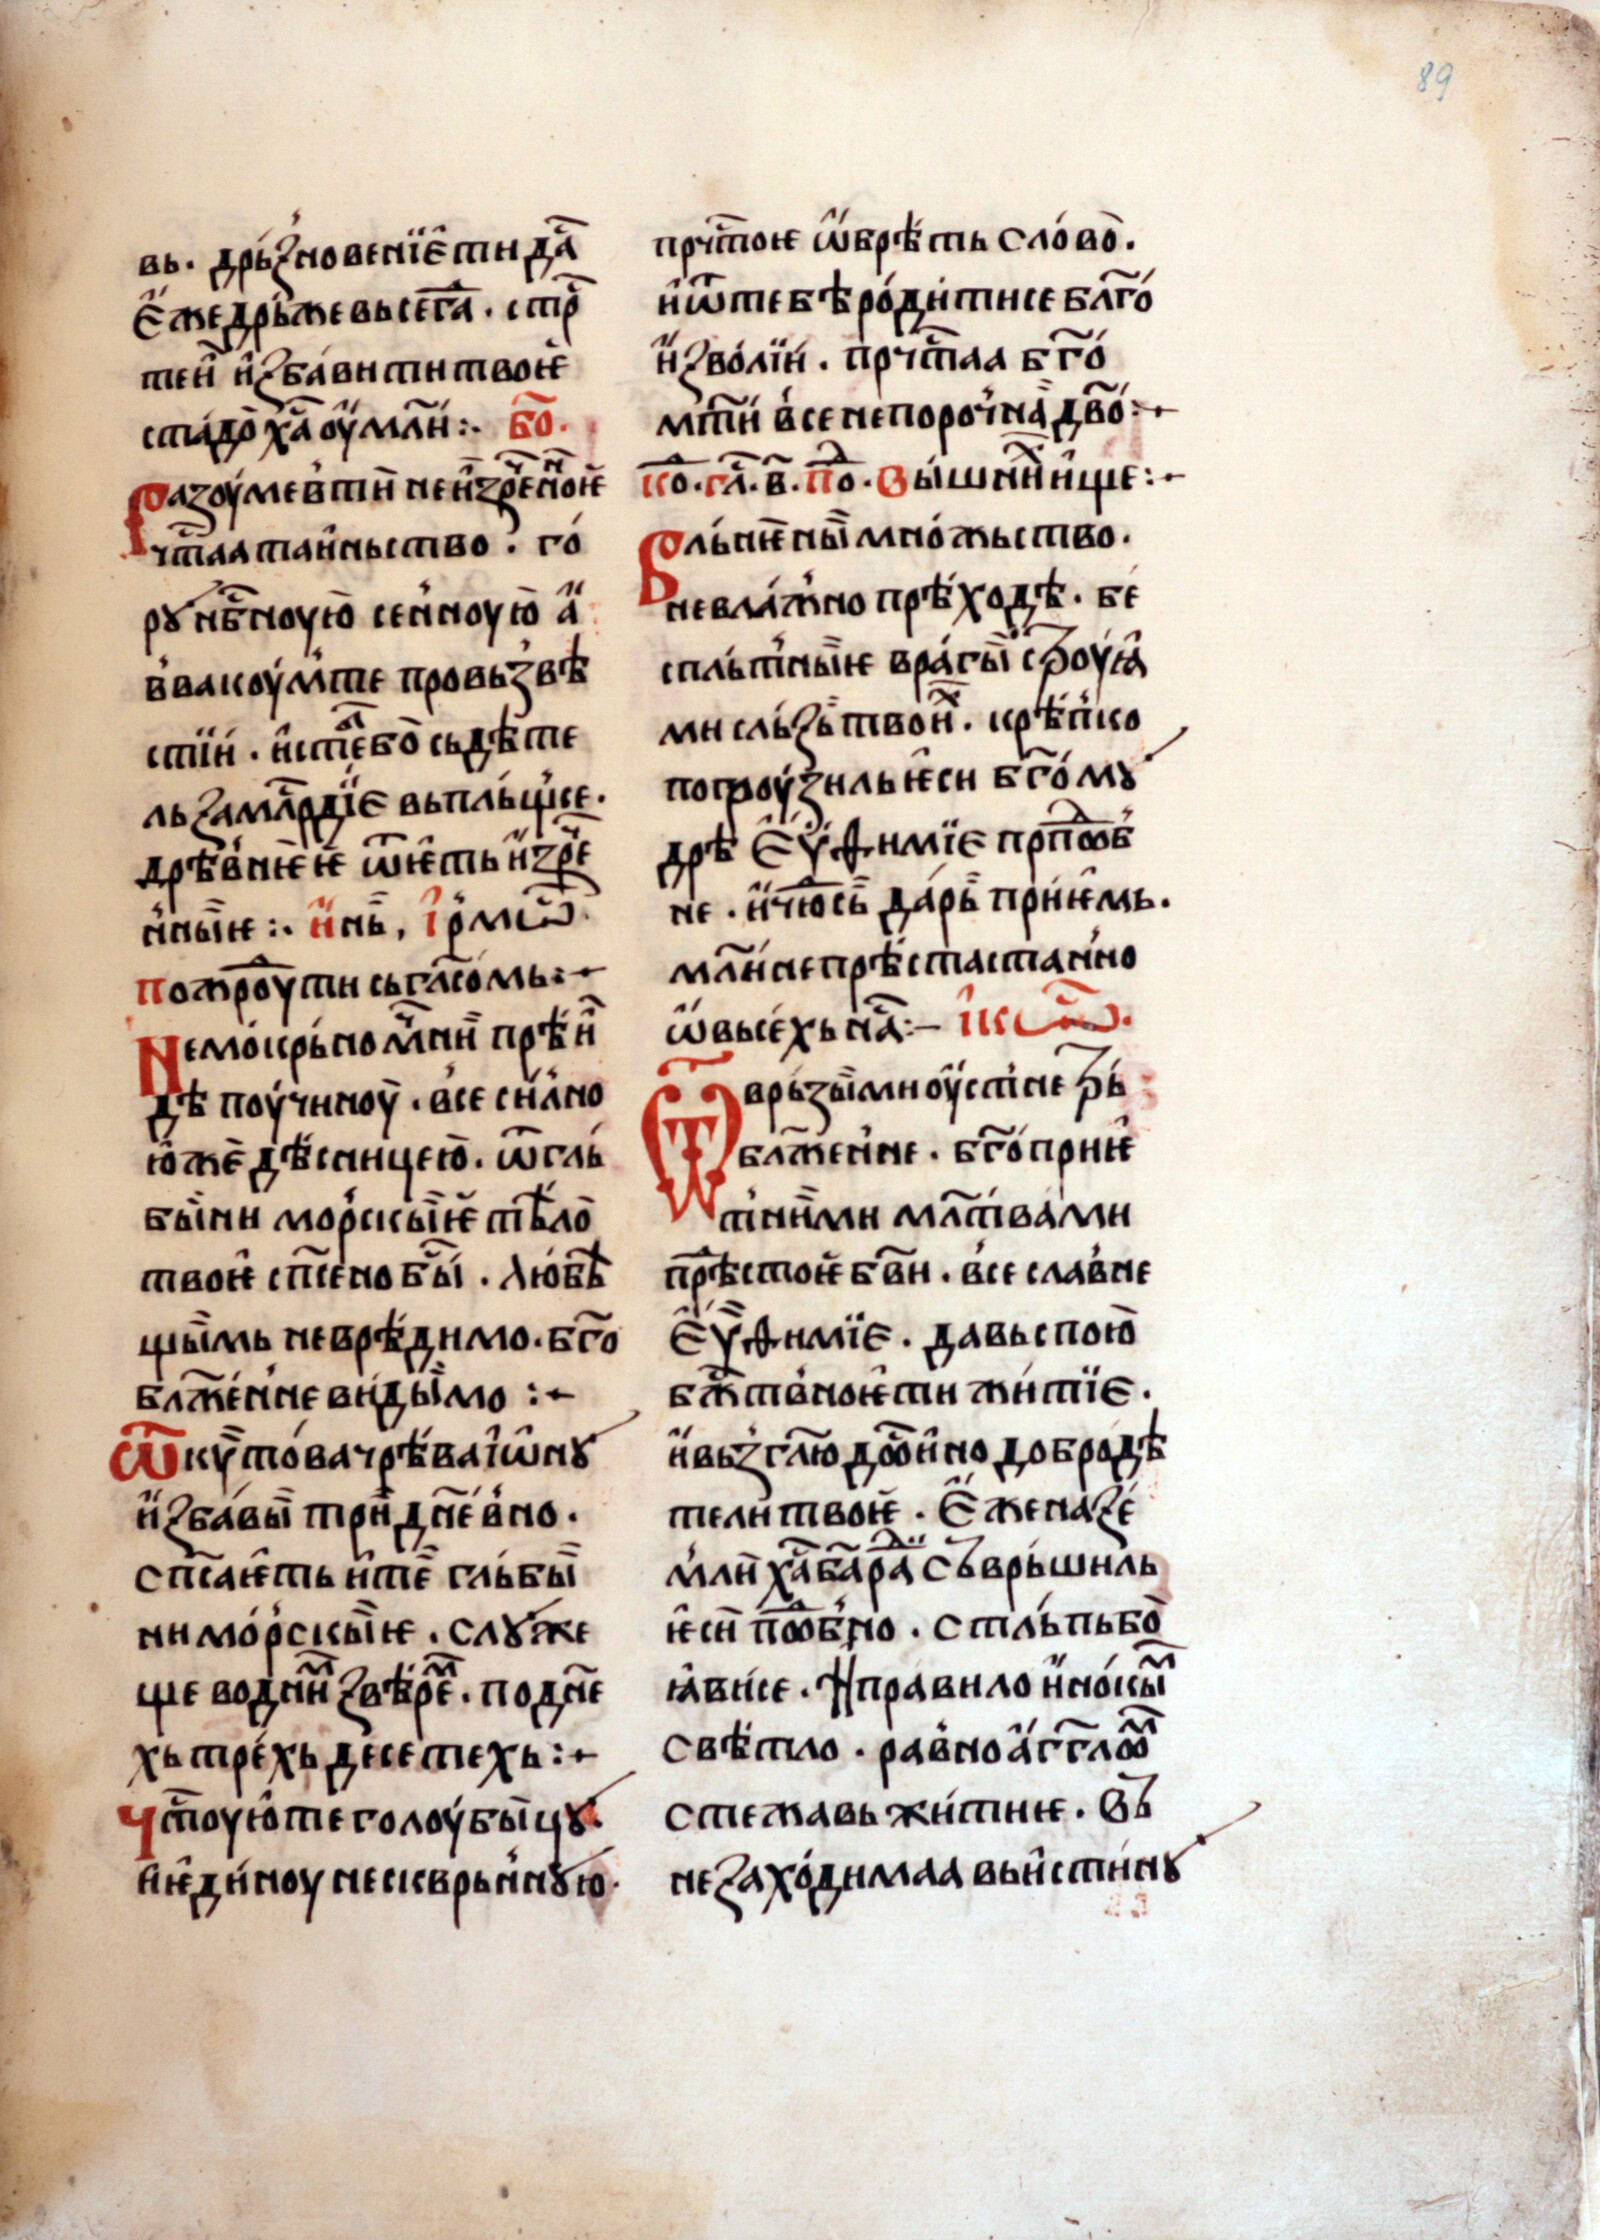 89
вь. дрьзновенїе ти да҇
е҆же дрьже вьсег҇а. стр҇
теи и҆збавити твоѥ
стадо х҇а оу҆мл҇и:. б҇о.
Разоумев ти неи҆зр҇еноѥ
чт҇аа таиньство. го
рꙋ нб҇ноую сеньноую а҆
ввакоум те провьзвѣ
стїи. и҆ст҇е бо сьдѣте
ль за мл҇рдїе вьпльщ се.
дрѣвнѥѥ ѿѥть и҆зр҇е
нныѥ:. и҆ нь, і҆рмѡ҇
пожроу ти сь гл҇сомь:
Немокрьно мч҇ни прѣи
дѣ поучиноу. все силно
ю же дѣсницею. ѿ гль
быни морскыѥ тѣло
твоѥ сп҇сено бы҇. любѣ
щымь неврѣдимо. б҇го
блж҇енне видымо :
Ѿ кутова чрѣва і҆ѡнꙋ
и҆збавы тридн҇евно.
сп҇саѥть и҆ те гльбы
ни морскыѥ. слꙋже
ще водни҇ звѣре҇. по дн҇е
хь трехь десетехь :
Чт҇оую те голоубыцꙋ
и ѥдиноу нескврьннꙋю.
прчт҇оѥ ѡ҆брѣть слово.
и҆ ѿ тебѣ родити се бл҇го
и҆зволїи. прчт҇аа б҇го
мт҇и все непорочна дв҇о:
ко҇. гл҇а. в҃. по҇. Вышни҇ и҆ще:
Вльнѥны множьство.
невлажно прѣходѣ. бе
спльтныѥ врагы строуꙗ
ми сльзь твои҇. крѣпко
погроузиль ѥси б҇гомꙋ
дрѣ еѵ҆ѳимїе прп҇ѡб
не. и҆ чюсь дарь приѥмь.
мл҇и непрѣстастанно
ѡ҆ вьсехь на҇:– і҆кѡ҇с.
Ѿврьзы ми оустне ѡ҇ть
блж҇енне. б҇гоприѥ
тними мл҇твами
прѣстоѥ б҇ви. все славне
еѵ҆ѳимїе. да вьспою
бж҇твноѥ ти житїе.
и҆ вьзгл҇ю достоино добродѣ
тели твоѥ. е҆же на зе
мли х҇а б҇а ра҇ди сьврьшиль
ѥси под҇обно. стльпь бо
ꙗви се. и правило и҆нокы҇м
свѣтло. равно а҆гг҇лѡ҇м
стежавь житиѥ. вь
незаходимаа вьи҆стинꙋ